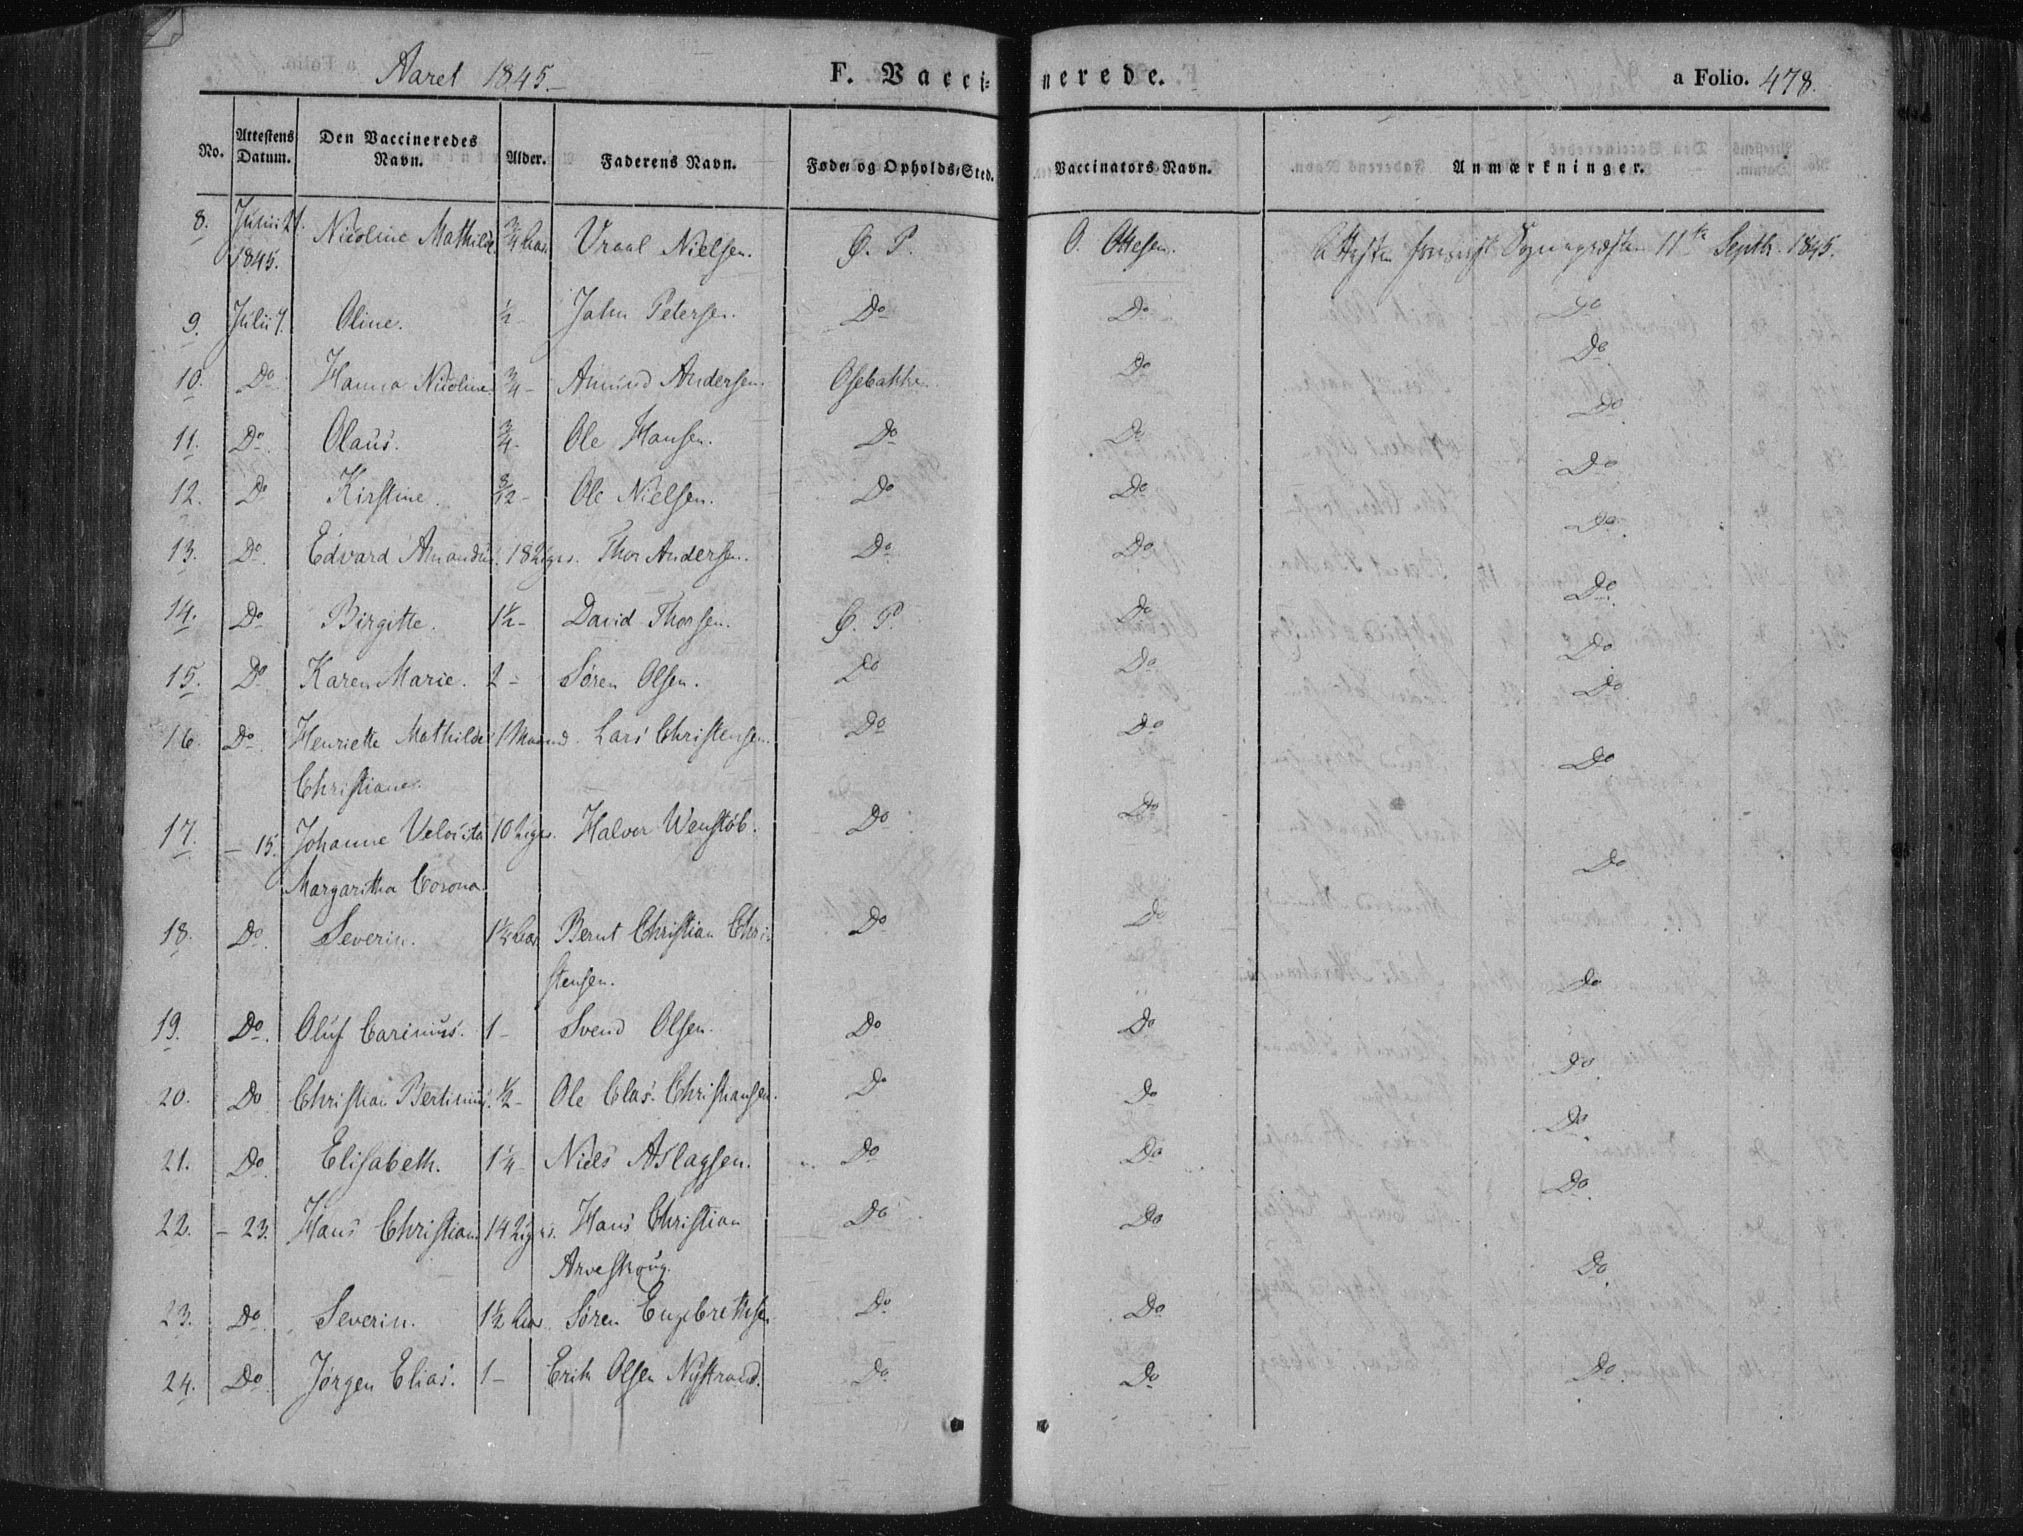 Aaret 1845.
F. Vaccinerede.
a Folio. 478.
No. Attestens Datum. Den Vaccineredes Navn. Alder. Faderens Navn. Føde- og Opholds-Sted. Vaccinators Navn. Anmærkninger.
8. Junii 21. 1845. Nicoline Mathilde. 3/4 Aar. Vraal Nielsen. Ø. P. O. Ottesen. Attesten foreviist Sognepræsten 11te Septbr. 1845.
9. Julii 7. Oline. 1/2 - John Petersen. Do Do Do
10. Do Hanna Nicoline 3/4 - Amund Andersen. Osebakke. Do Do
11. Do Olaus. 3/4 - Ole Hansen. Do Do Do
12. Do Kirstine. 8/12 - Ole Nielsen. Do Do Do
13. Do Edvard Amandus. 18 Uger. Thor Andersen. Do Do Do
14. Do Birgitte. 1 1/2 - David Thorsen. Ø. P. Do Do
15. Do Karen Marie. 2 - Søren Olsen. Do Do Do
16. Do Henriette Mathilde 1 Maaned. Lars Christensen. Do Do Do
Christiane.
17. - 15. Johanne 10 Uger. Halvor Wenstøb. Do Do Do
Margaritha Corona.
18. Do Severin. 1 1/4 Aar Bernt Christian Chri- Do Do Do
stensen.
19. Do Oluf Carinius. 1 - Svend Olsen. Do Do Do
20. Do Christian Bertinius. 1/2 - Ole Clas. Christiansen. Do Do Do
21. Do Elisabeth. 1 1/4 - Niels Aslagsen. Do Do Do
22. - 23. Hans Christian 14 Uger. Hans Christian Do Do Do
Arveskoug.
23. Do Severin. 1 1/2 Aar. Søren Engebrethsen Do Do Do
24. Do Jørgen Elias. 1 - Erik Olsen Nystrand. Do Do Do